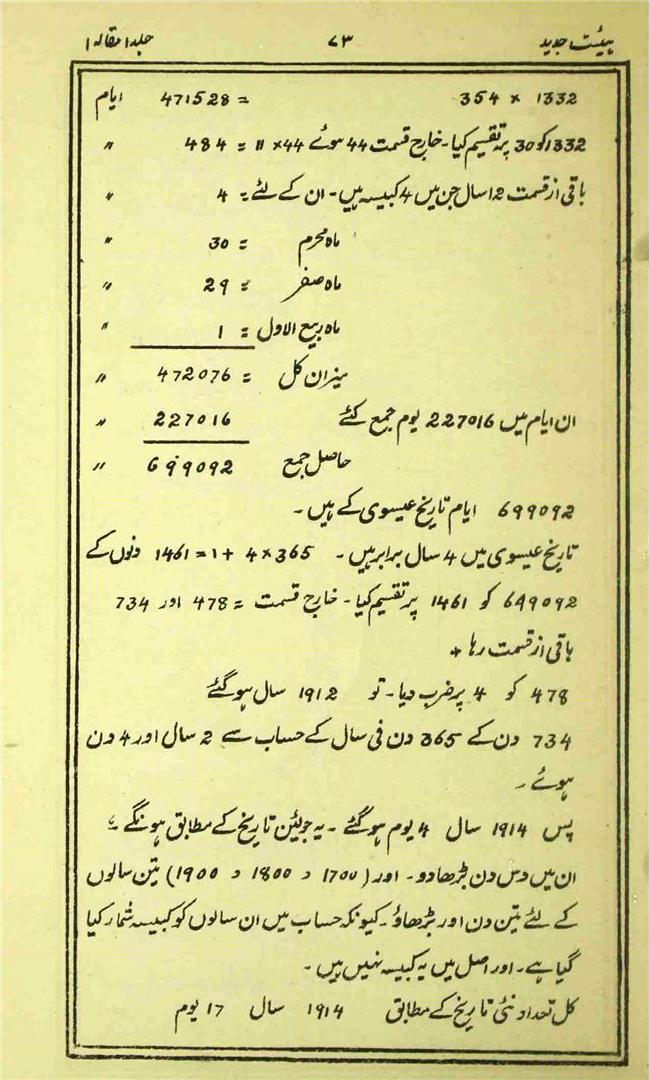 ہیئت جدید ۷۳ جلد ۱ مقالہ ۱
1332 × 354 = 471528 ایام
1332 کو 30 پر تقسیم کیا۔ خارج قسمت 44 ہوئے 44 × 11 = 484 〃
باقی از قسمت 12 سال جن میں 4 کبیسہ ہیں۔ ان کے لئے = 4 〃
ماہ محرم = 30 〃
ماہ صفر = 29 〃
ماہ ربیع الاول = 1 〃
میزان کل = 472076 〃
ان ایام میں 227016 یوم جمع کئے 227016 〃
حاصل جمع 699092 〃
699092 ایام تاریخ عیسوی کے ہیں۔
تاریخ عیسوی میں 4 سال برابر ہیں۔ 365 × 4 + 1 = 1461 دنوں کے
699092 کو 1461 پر تقسیم کیا۔ خارج قسمت = 478 اور 734
باقی از قسمت رہا +
478 کو 4 پر ضرب دیا۔ تو 1912 سال ہو گئے
734 دن کے 365 دن فی سال کے حساب سے 2 سال اور 4 دن
ہوئے۔
پس 1914 سال 4 یوم ہو گئے۔ یہ جولین تاریخ کے مطابق ہونگے
ان میں دس دن بڑھا دو۔ اور (1700 و 1800 و 1900) تین سالوں
کے لئے تین دن اور بڑھاؤ۔ کیونکہ حساب میں ان سالوں کو کبیسہ شمار کیا
گیا ہے۔ اور اصل میں یہ کبیسہ نہیں ہیں۔
کل تعداد نئی تاریخ کے مطابق 1914 سال 17 یوم